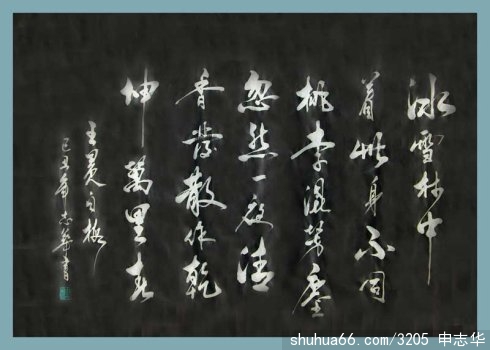 冰雪林中
着此身不同
桃李混芳塵
忽然一夜清
香發散作乾
坤萬里春
王冕白梅
己丑年志華書
shuhua66.com/3205 申志华